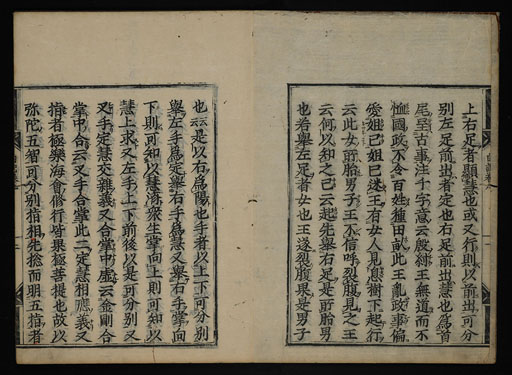 上右足者顯慧也或又行則以前出可分
別左足前出者定也右足前出慧也爲首
尾至古事注千字意云殷紂王無道而不
恤國政不令百姓種田畝此王亂政事偏
愛妲己妲己迷王有女人見息樹下起行
云此女所胎男子王不信呼裂腹見之王
云何以知之己云起先舉右足是所胎男
也若舉左足者女也王遂裂腹果是男子
也云云是以右爲陽也手者以上下可分別
舉左手爲定舉右手爲慧又舉右手掌向
下則可知以慧濟衆生掌向上則可知以
慧上求又左手上下前後以是可分別又
叉手定慧交雜義又合掌中虛云金剛合
掌中合云云又手合掌此二定慧相應義又
指者極樂海會修行皆果極菩提也故以
弥陀五智可分別指相先捻而朋五指者